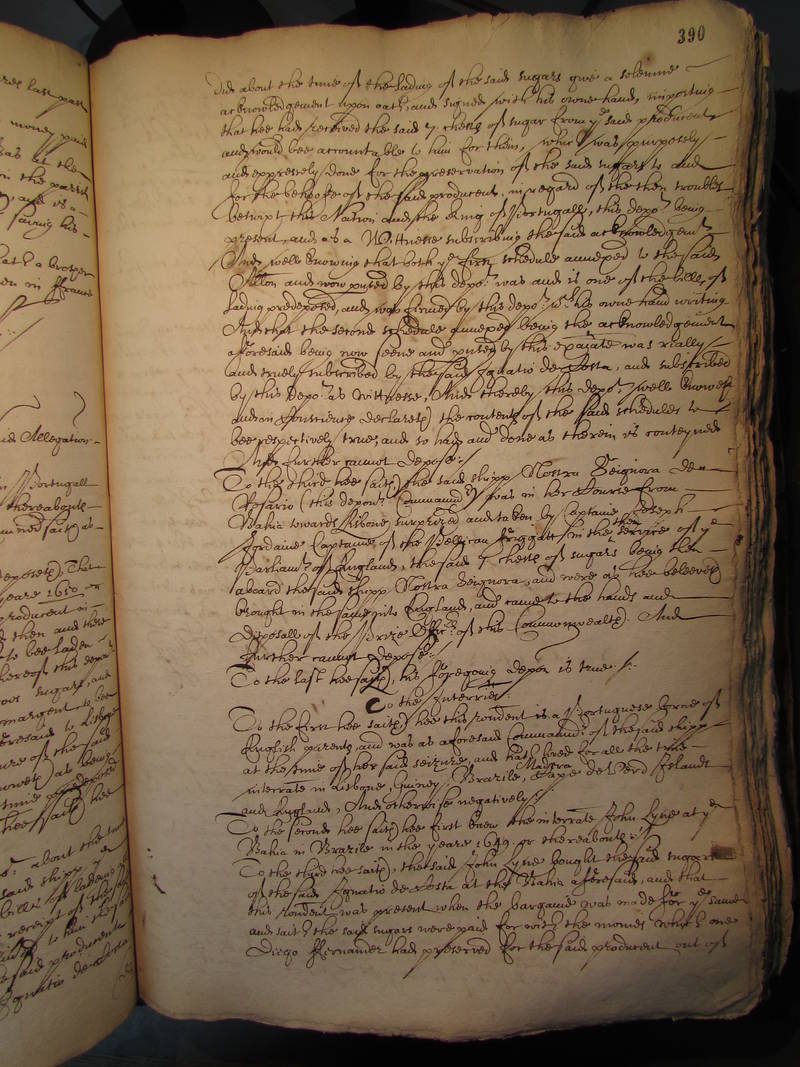 390
did about the time of the lading of the said sugars give a solemne
acknowledgement upon oath, and signed with his owne hand, importing
that hee had received the said 7 chests of sugar from ye said producent
and would bee accountable to him for them, which was purposely
and expressely done for the preservation of the said sugars to and
for the behoofe of the said producent, in regard of the then troubles
betwixt this Nation and the King of Portugall, this depot being
present, and as a Wittnesse subscribing the said acknowledgemt
And well knowing that both ye first schedule annexed to the said
Allon and now perused by this depot was and is one of the bills of
lading predeposed, and was firmed by this depot wth his owne hand writing
And that the second schedule annexed being the acknowledgement
aforesaid being now seene and perused by this examinate was really
and truely subscribed by the said Ignatio de Costa, and subscribed
by this depot as Wittnesse, And thereby this depot well knoweth
and in Conscience declareth the contents of the said schedules to
bee respectively true, and so had and done as therein is conteyned
And further cannot depose./
To the third hee saith, the said shipp Nostra Seignora de
Rosario (this depont Commandr) was in her Course from
Bahia towards Lisbone surprized and taken by Captaine Joseph
Jordaine Captaine of the Pellican friggatt in the then service of ye
Parliamt of England, the said 7 chests of sugars being then
aboard the said shipp Nostra Seignora, and were as hee beleeveth
brought in the same into England, and came to the hands and
disposall of the Prize Officrs of this Commonwealth, And
further cannot depose./
To the last hee saith, his foregoing depon is true./.
To the Interries.
To the first hee saith, hee this rondent is a Portuguese borne of
English parents, and was as aforesaid Commandr of the said shipp
at the time of her said seizure, and hath lived for all the time
interrate in Lisbone, Guiney, Brazile, Madera Cape de Verd Islands
and England, And otherwise negatively./
To the second hee saith, hee first knew the interrate John Lyne at ye
Bahia in Brazile in the yeare 1649. or thereabouts./
To the third hee saith, the said John Lyne bought the said sugars
of the said Ignatio de Costa at the Bahia aforesaid, and that
this rondent was present when the bargaine was made for ye same
and saith the said sugars were paid for with the moneis which one
Diego Fernandez had preserved for the said producent out of